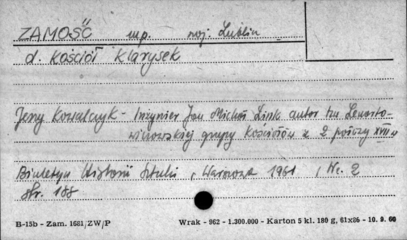 ZAMOŚĆ mp. woj. Lublin
d. Kościół Klarysek
Jerzy Kowalczyk - Inżynier Jan Michał Link autor
grupy kościołów z 2 połowy XVII w
Biuletyn Historii Sztuki, Warszawa 1961, Nr. 2
str. 188
B-15b - Zam. 1681/ZW/P Wrak - 962 - 1.300.000 - Karton 5 kl. 180 g, 61x86 - 10. 9. 60